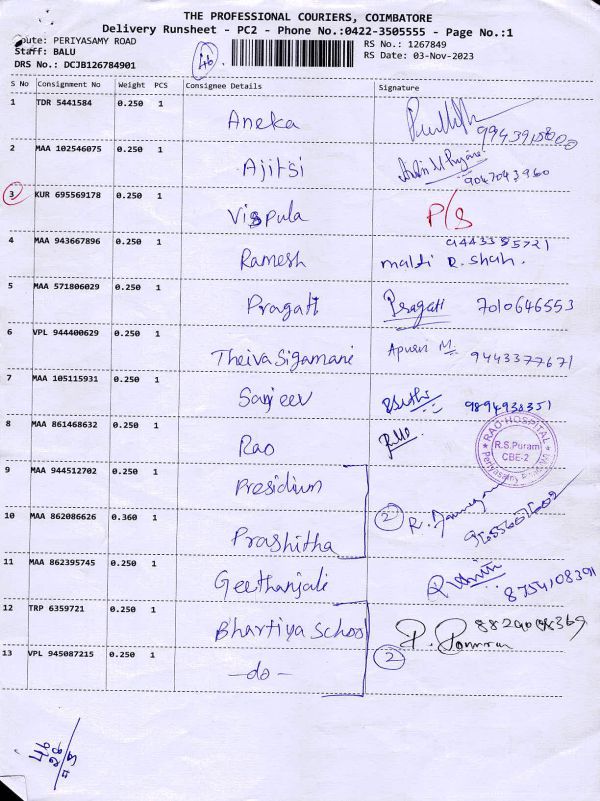 THE PROFESSIONAL COURIERS, COIMBATORE
Delivery Runsheet - PC2 - Phone No.:0422-3505555 - Page No.:1
oute: PERIYASAMY ROAD
RS No.: 1267849
Staff: BALU
46
RS Date: 03-Nov-2023
DRS No.: DCJB126784901
S No Consignment No Weight PCS Consignee Details Signature
1 TDR 5441584 0.250 1 Aneka
2 MAA 102546075 0.250 1 Ajitsi 9047043960
3 KUR 695569178 0.250 1 Vispula P/S
4 MAA 943667896 0.250 1 Ramesh malti R. shah.
5 MAA 571806029 0.250 1 Pragati Pragati 7010646553
6 VPL 944400629 0.250 1 Theiva Sigamani Apurvi M. 9443377671
7 MAA 105115931 0.250 1 Sanjeev 9894938351
8 MAA 861468632 0.250 1 Rao
RAO-HOSPITAL
R.S.Puram
CBE-2
9 MAA 944512702 0.250 1 Presidium
10 MAA 862086626 0.360 1 Prashitha 2
11 MAA 862395745 0.250 1 Geethanjali 8754108391
12 TRP 6359721 0.250 1 Bhartiya School
13 VPL 945087215 0.250 1 -do- 2